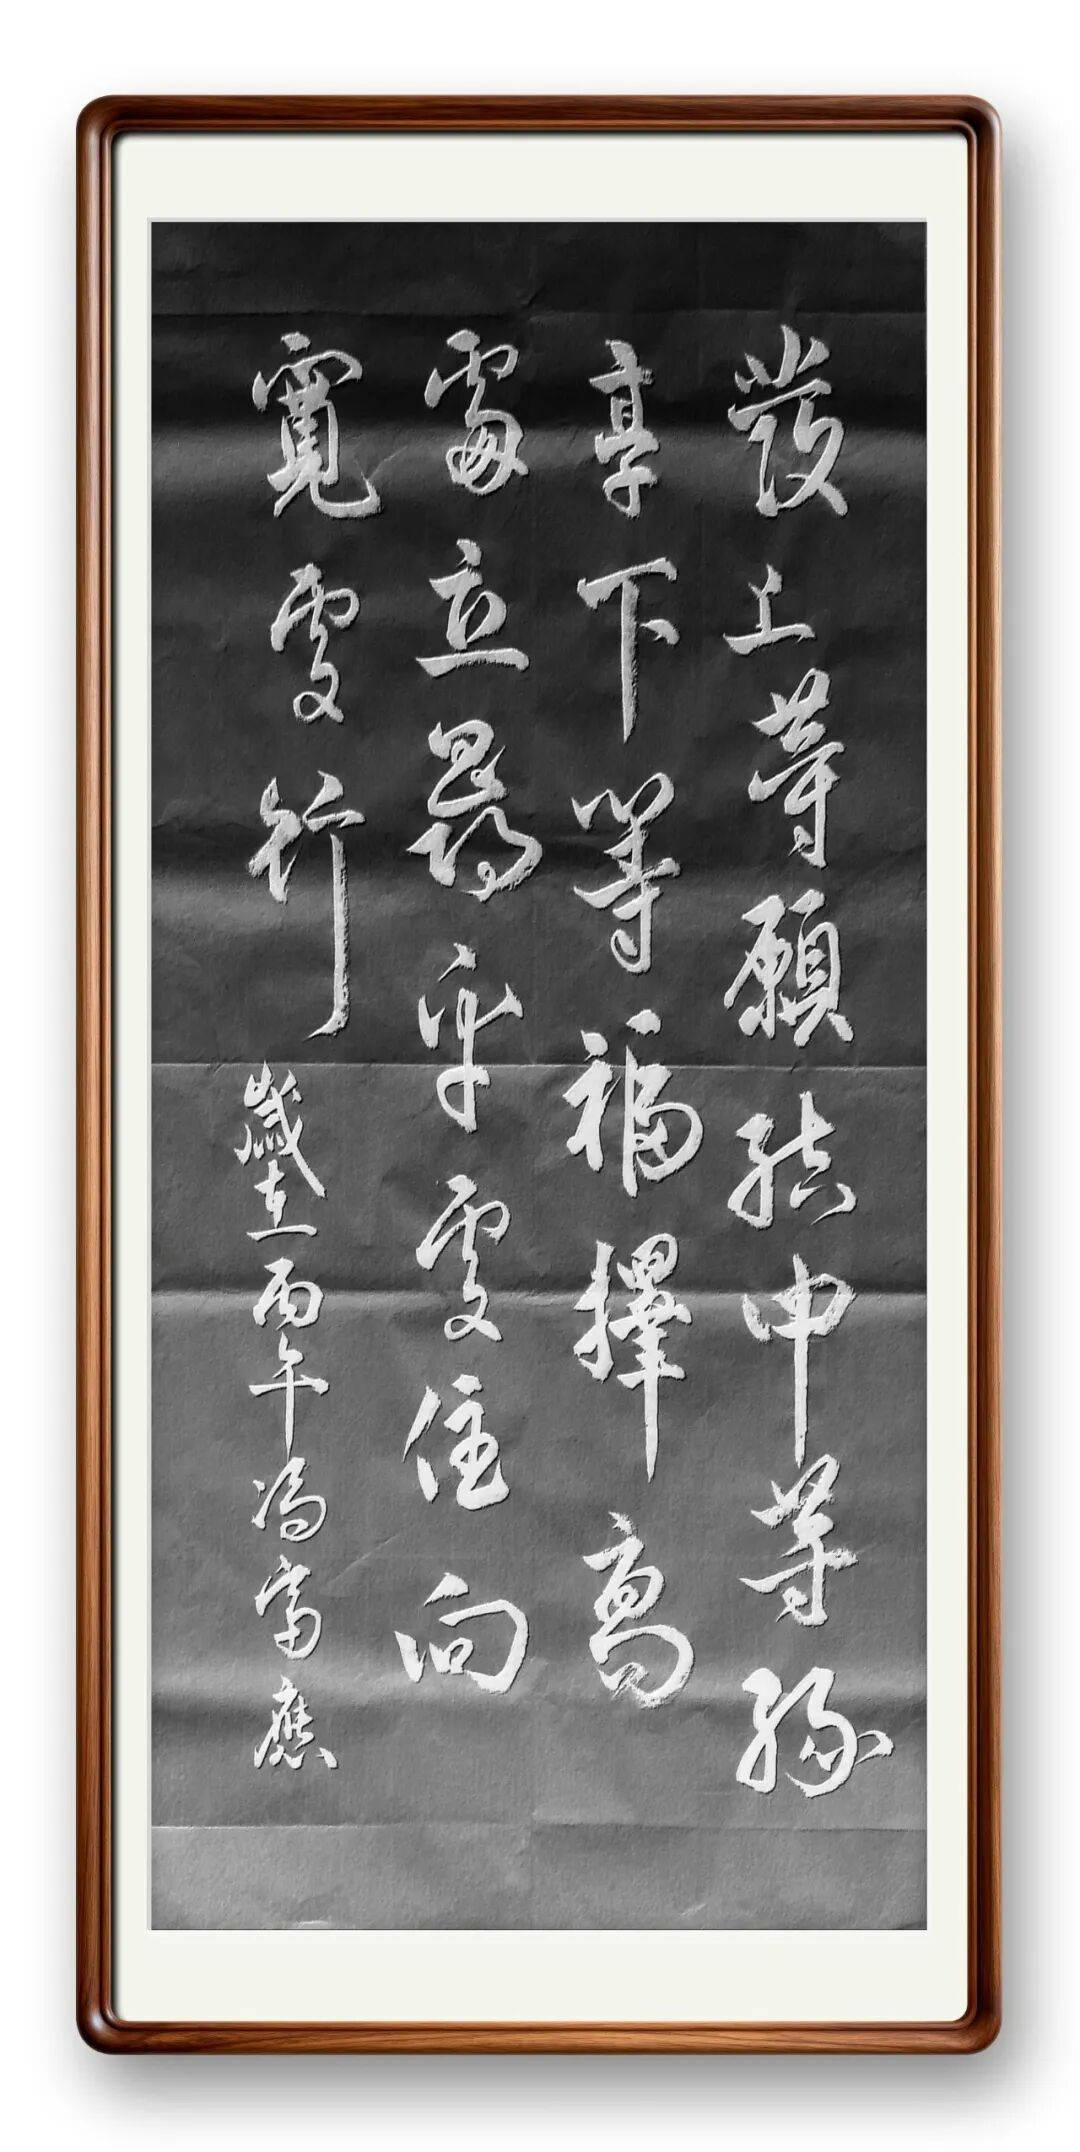 發上等願結中等緣
享下等福擇高
處立尋平處住向
寬處行
歲在丙午馮富應